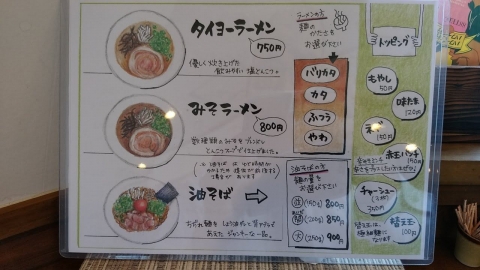 タイヨーラーメン
750円
優しく炊き上げた
飲みやすい豚とんこつ。
みそラーメン
800円
数種類のみそをブレンド
とんこつスープで仕上げました。
油そば
ちぢれ麺を
あえたジャンキーな一品。
ラーメンの方
麺の
かたさを
お選び下さい
バリカタ
カタ
ふつう
やわ
油そばの方
麺の量を
お選び下さい
(150g) 800円
(200g) 850円
大 (250g) 900円
トッピング
もやし
50円
味たま
120円
ネギ
150円
赤玉
150円
チャーシュー
替え玉
100円
替え玉は、
極細麺に
なります